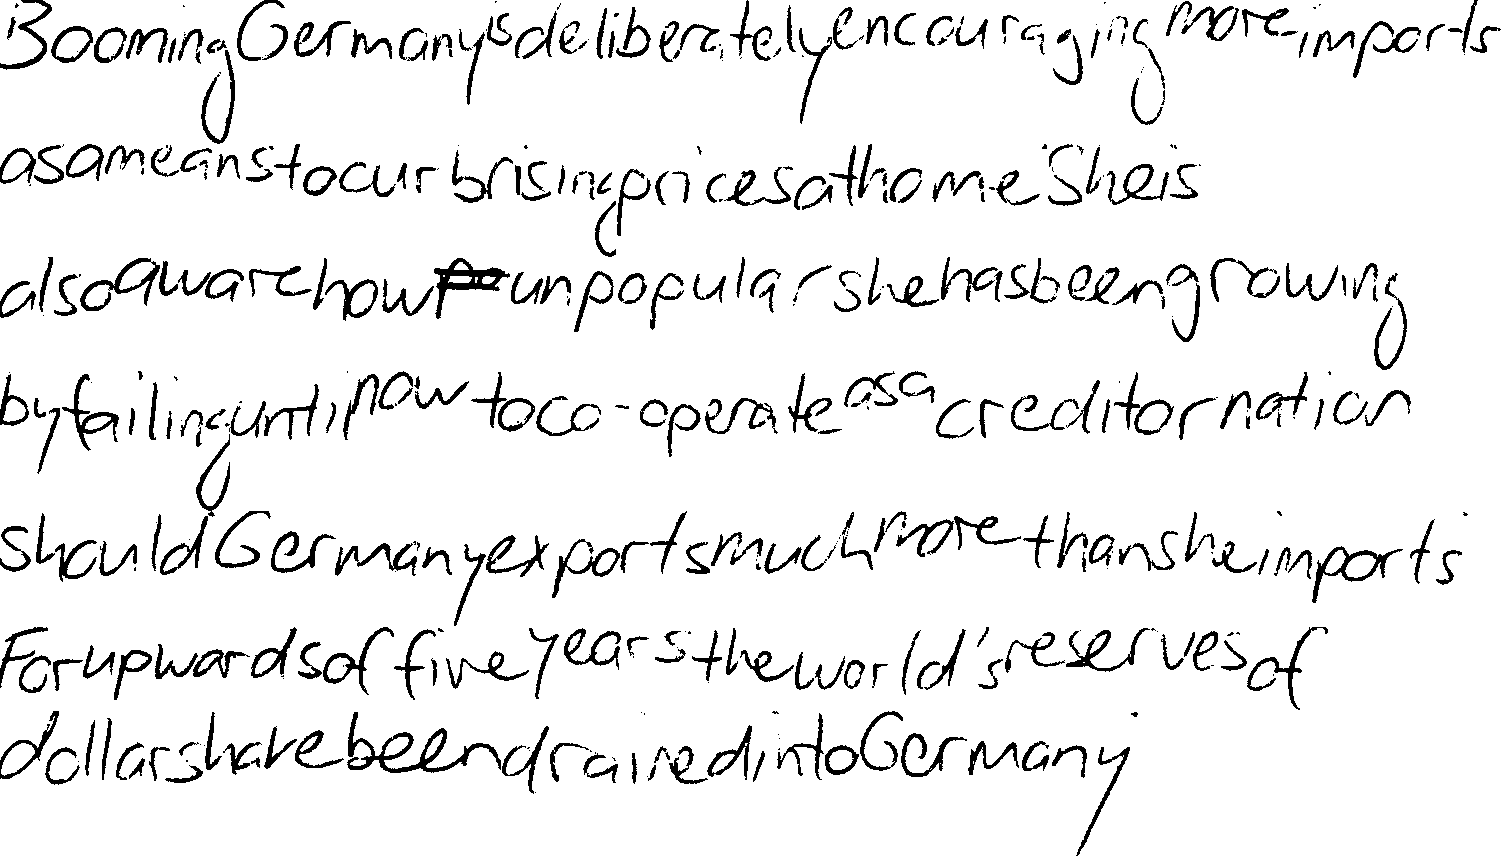 Booming Germany is deliberately encouraging more imports
as a means to curb rising prices at home She is
also aware how unpopular she has been growing
by failing until now to co-operate as a creditor nation
should Germany exports much more than she imports
For upwards of five years the world's reserves of
dollars have been drained into Germany